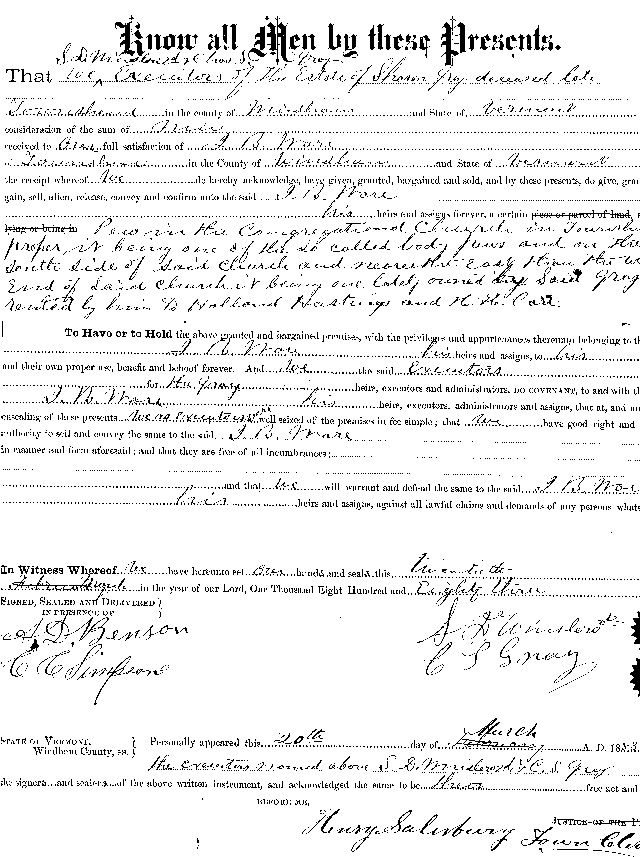 Know all Men by these Presents.
S. D. Winslow & Chas S. Gray
That we, Executors of the Estate of Gray deceased late
Townshend in the county of Windham and State of Vermont
consideration of the sum of
received to Our full satisfaction of J B Ware
Townshend in the County of Windham and State of Vermont
the receipt whereof We do hereby acknowledge, have given, granted, bargained and sold, and by these presents, do give, gran
gain, sell, alien, release, convey and confirm unto the said J B Ware
his heirs and assigns forever, a certain piece or parcel of land,
lying or being in Pew in the Congregational Church in Townshe
proper, it being one of the so called body pews and on the
South side of said church and nearer the East than the W
End of said church it being one lately owned by said Gray
rented by him to Holland Hastings and H. H. Carr
To Have or to Hold the above granted and bargained premises, with the privileges and appurtenances thereunto belonging to th
J B Ware his heirs and assigns, to his
and their own proper use, benefit and behoof forever. And we the said Executors
for the Gray heirs, executors and administrators, DO COVENANT, to and with th
J B Ware his heirs, executors, administrators and assigns, that at, and un
ensealing of these presents we as executors are well seized of the premises in fee simple; that we have good right and
authority to sell and convey the same to the said J B Ware
in manner and form aforesaid; and that they are free of all incumbrances;
and that we will warrant and defend the same to the said J B War
his heirs and assigns, against all lawful claims and demands of any persons whats
In Witness Whereof We have hereunto set Our hands and seals this Twentieth
in the year of our Lord, One Thousand Eight Hundred and Eighty three
SIGNED, SEALED AND DELIVERED
IN PRESENCE OF
A. D. Benson S D Winslow
C C Simpson C S Gray
STATE OF VERMONT, Windham County, ss. Personally appeared this 20th day of March February A. D. 1883
the executors named above S D Winslow & C. S. Gray
he signers and sealers of the above written instrument, and acknowledged the same to be their free act and
BEFORE ME,
Henry Salisbury Town Cler
JUSTICE OF THE P